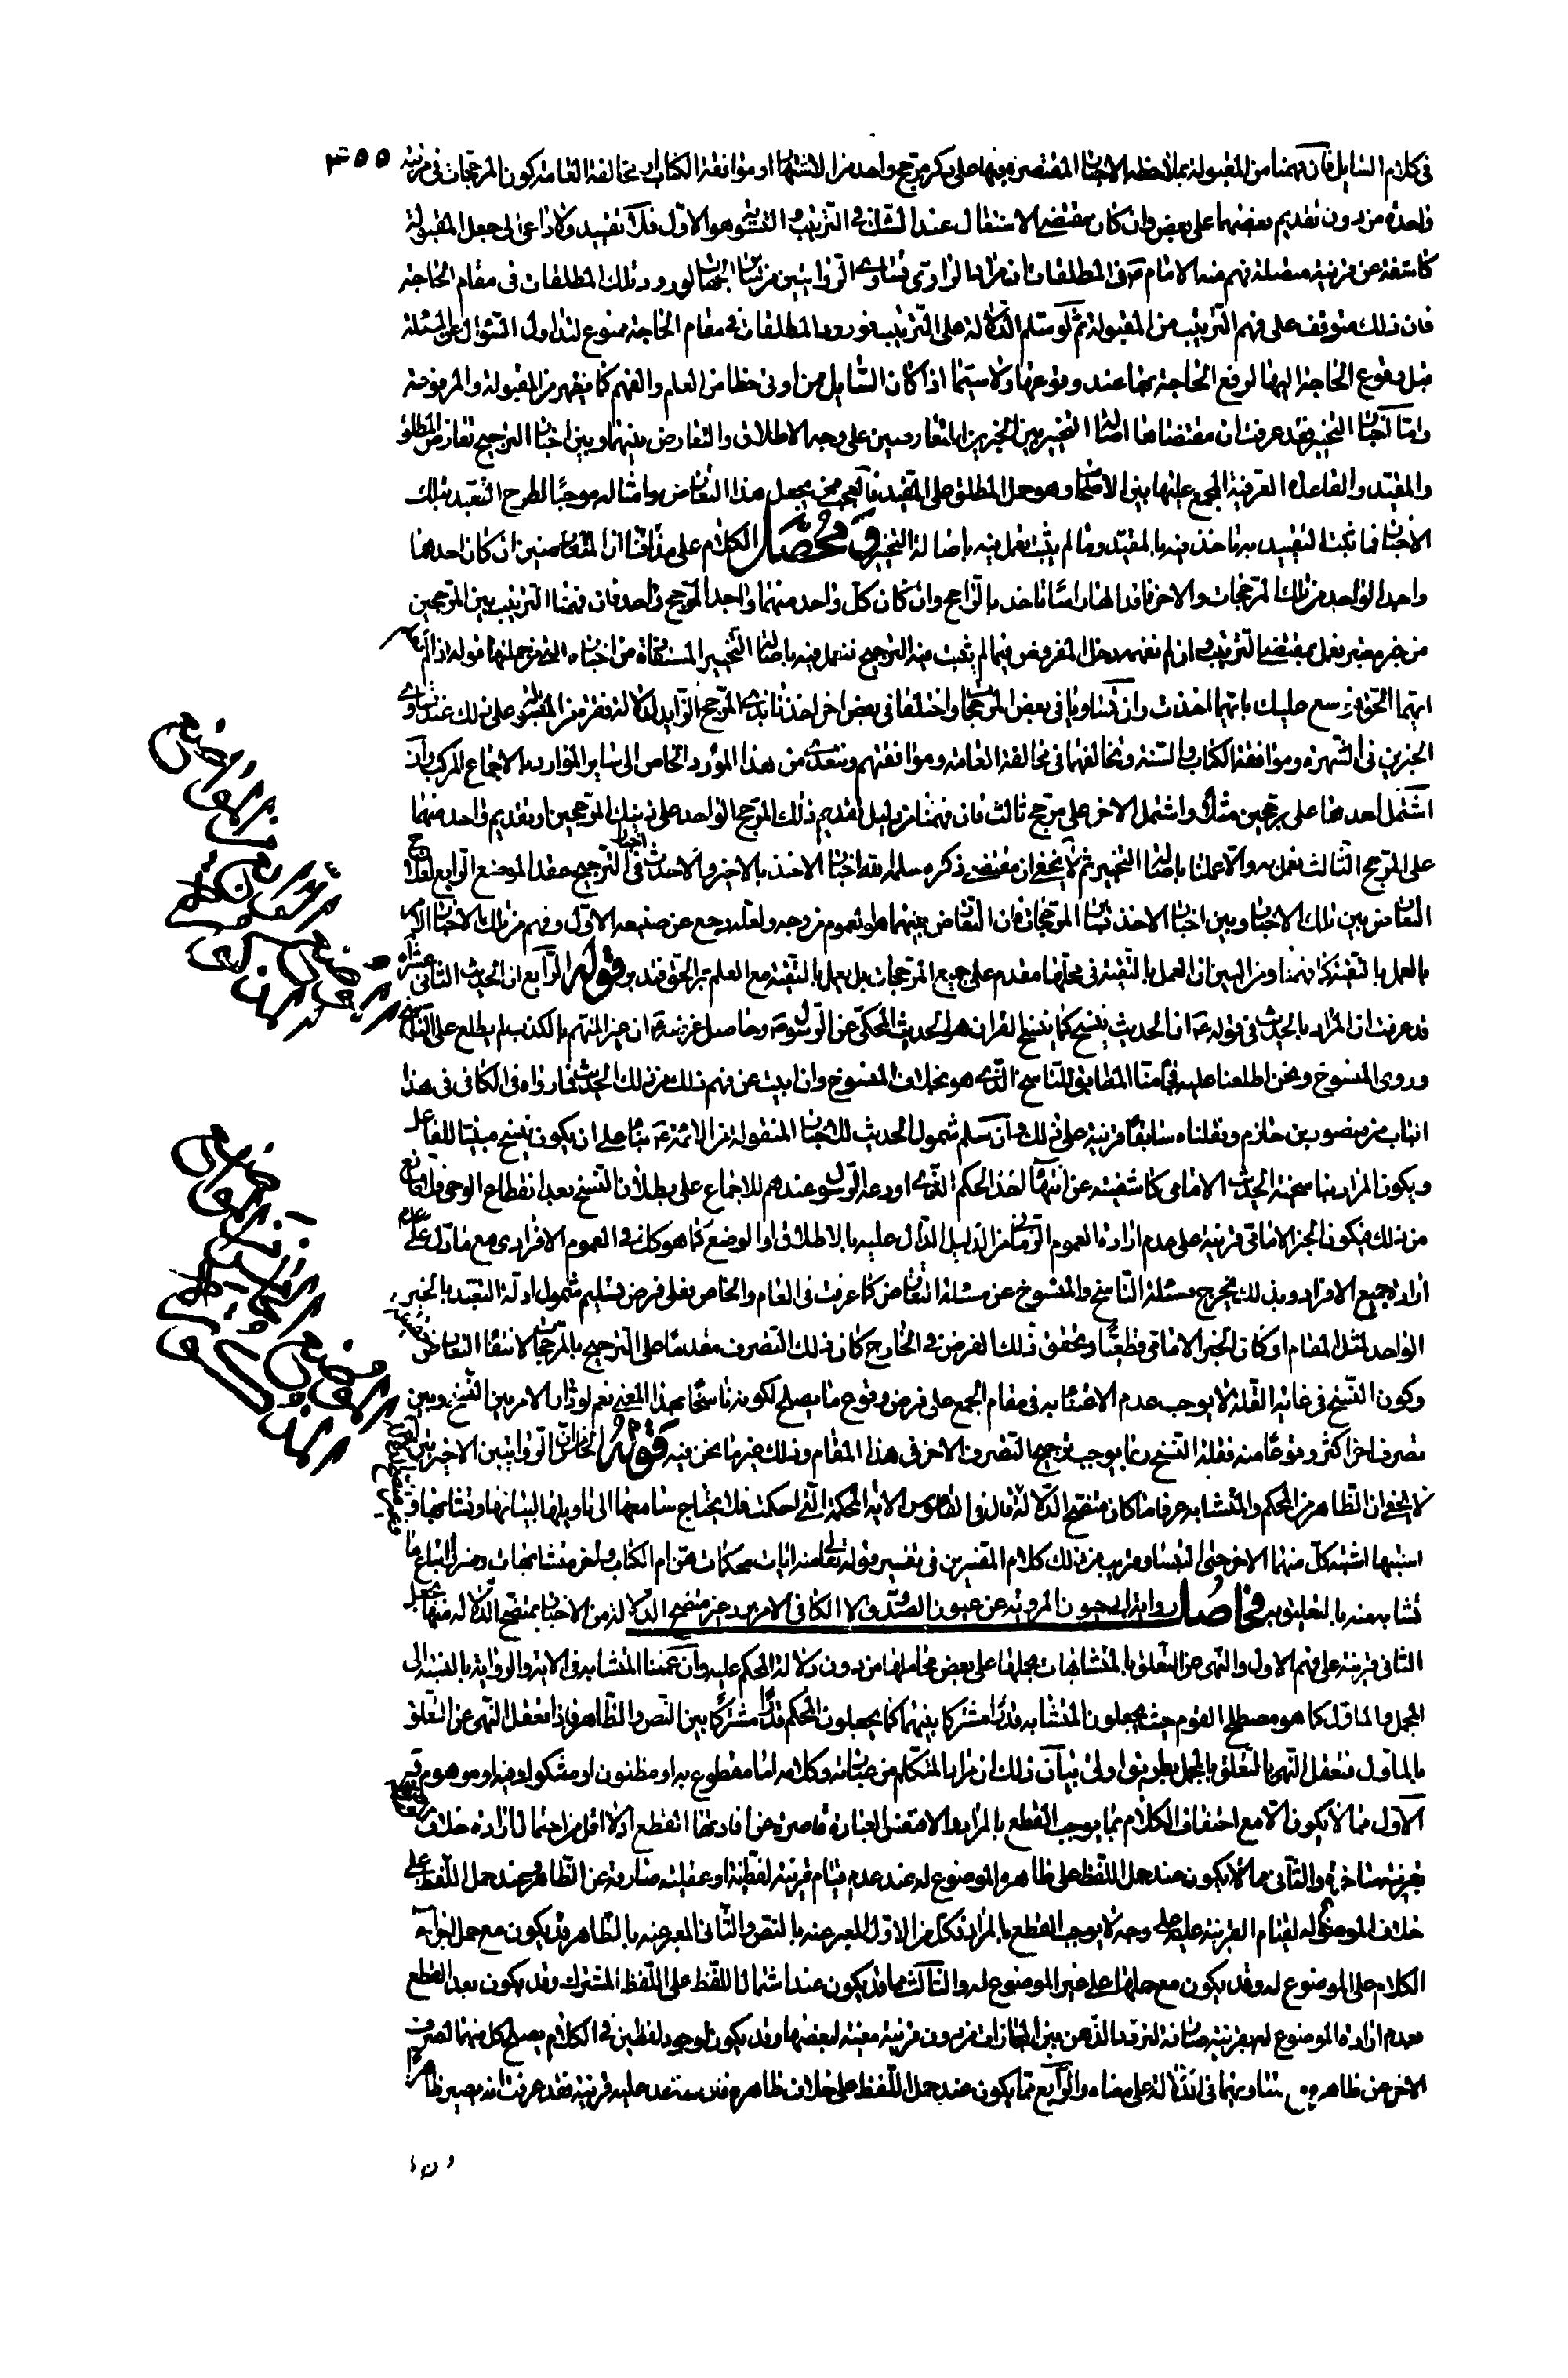 ٣٥٥
في كلام السايل فان فهمنا من المقبولة بملاحظة الاخبار المقتصرة فيها على ذكر مرجح واحد من الاشتهار او موافقة الكتاب او مخالفة العامة كون المرجحات في مرتبة
واحدة من دون تقديم بعضها على بعض وان كان مقتضى الاستقال عند الشك في الترتيب و التسوية هو الاول فلا تقييد ولا داعي الى جعل المقبولة
كاشفة عن قرينة متصلة فهم منه الامام ع في المطلقات ان مراد الراوي تساوي الروايتين من ساير الجهات لورود تلك المطلقات في مقام الحاجة
فان ذلك متوقف على فهم الترتيب من المقبولة ثم لو سلم الدلالة على الترتيب فورود المطلقات في مقام الحاجة ممنوع لتداول السؤال عن المسئلة
قبل وقوع الحاجة اليها لرفع الحاجة بها عند وقوعها ولا سيما اذا كان السايل ممن اوتي حظا من العلم والفهم كما يظهر من المقبولة والمرفوعة
واما اخبار التخيير فقد عرفت ان مقتضاها اصالة التخيير بين الخبرين المتعارضين على وجه الاطلاق والتعارض بينهما وبين اخبار الترجيح تعارض المطلق
والمقيد والقاعدة العرفية المجمع عليها بين الاصحاب وهو حمل المطلق على المقيد فالعجب ممن يجعل هذا التعارض وامثاله موجبا لطرح التعبد بتلك
الاخبار فما ثبت التقييد به ناخذ فيه بالمقيد وما لم يثبت نعمل فيه باصالة التخيير ومحصل الكلام على مذاقنا ان المتعارضين ان كان احدهما
واجدا لواحد من تلك المرجحات والاخر فاقدا لها راسا ناخذ بالراجح وان كان كل واحد منهما واجدا لمرجح واحد فان فهمنا الترتيب بين المرجحين
من خبر معتبر نعمل بمقتضى الترتيب و ان لم نفهم دخل المفروض فيما لم يثبت فيه الترجيح فنعمل فيه باصالة التخيير المستفادة من اخباره التي من جملتها قوله اذا لم تعلم
ايهما الحق فموسع عليك بايهما اخذت وان تساويا في بعض المرجحات واختلفا في بعض اخر اخذنا بذي المرجح الزايد لدلالة فقرة من المقبولة على ذلك عند تساوي
الخبرين في الشهرة وموافقة الكتاب والسنة وتخالفهما في مخالفة العامة وموافقتهم ونتعدى من هذا المورد الخاص الى ساير الموارد بالاجماع المركب وان
اشتمل احدهما على مرجحين مثلا واشتمل الاخر على مرجح ثالث فان فهمنا من دليل تقديم ذلك المرجح الواحد على ذينك المرجحين او تقديم واحد منهما
على المرجح الثالث نعمل به والا عملنا باصالة التخيير ثم لا يخفى ان مقتضى ذكره سلمه الله اخبار الاخذ بالاخير والاحدث في اخبار الترجيح عقد الموضع الرابع لعلاج
التعارض بين تلك الاخبار وبين اخبار الاخذ بساير المرجحات فان التعارض بينهما هو بعموم من وجه ولعله رجع عن صنيعه الاول وفهم من تلك الاخبار الامر
بالعمل بالتقية كما فهمنا ومن البين ان العمل بالتقية في محلها مقدم على جميع المرجحات بل يعمل بالتقية مع العلم بالحق فتدبر قوله الرابع ان الحديث الثاني عشر اه
قد عرفت ان المراد بالحديث في قوله ع ان الحديث ينسخ كما ينسخ القران هو الحديث المحكي عن الرسول ص وحاصل غرضه ع ان غير المتهم بالكذب لم يطلع على الناسخ
وروى المنسوخ ونحن اطلعنا عليه فخبرنا المطابق للناسخ الذي هو بخلاف المنسوخ وان ابيت عن فهم ذلك من ذلك الحديث فما رواه في الكافي في هذا
الباب من منصور بن حازم ونقلناه سابقا قرينة على ذلك وان سلم شمول الحديث للاخبار المنقولة من الائمة ع بناء على ان يكون ينسخ مبنيا للفاعل
ويكون المراد بناسخية الحديث الامامي كاشفيته عن انتهاء اخذ الحكم الذي اودعه الرسول ص عندهم للاجماع على بطلان النسخ بعد انقطاع الوحي فلا مانع
من ذلك فيكون الخبر الامامي قرينة على عدم ارادة العموم الزماني من الدليل الدال عليه بالاطلاق او الوضع كما هو كك في العموم الافرادي مع ما دل على عدم
ارادة جميع الافراد وبذلك يخرج مسئلة الناسخ والمنسوخ عن مسئلة التعارض كما عرفت في العام والخاص فعلى فرض تسليم شمول ادلة التعبد بالخبر
الواحد لمثل المقام او كان الخبر الامامي قطعيا وتحقق ذلك الفرض في الخارج كان ذلك التصرف مقدما على الترجيح بالمرجحات لانتفاء التعارض
وكون النسخ في غاية القلة لا يوجب عدم الاعتناء به في مقام الجمع على فرض وقوع ما يصلح لكونه ناسخا بهذا المعنى نعم لو دار الامر بين النسخ وبين
تصرف اخر اكثر وقوعا منه فقلة النسخ ربما يوجب ترجيح التصرف الاخر في هذا المقام وذلك غير ما نحن فيه قوله الخامس ان الروايتين الاخيرتين
لا يخفى ان الظاهر من المحكم والمتشابه عرفا ما كان متضح الدلالة قال في القاموس الاية المحكمة التي احكمت فلا يحتاج سامعها الى تاويلها لبيانها وتشابها و
اشتبها اشبه كل منهما الاخر حتى التبسا وقريب من ذلك كلام المفسرين في تفسير قوله تعالى منه ايات محكمات هن ام الكتاب واخر متشابهات وفسر اتباع ما
تشابه منه بالتعليق به فحاصل رواية ابي حيون المروية عن عيون الصدوق لا الكافي الامر برد غير متضح الدلالة من الاخبار بمتضح الدلالة منها بجعل
الثاني قرينة على فهم الاول والنهي عن التعلق بالمتشابهات بحملها على بعض محاملها من دون دلالة المحكم عليه وان عممنا المتشابه في الاية والرواية بالنسبة الى
المجمل والماول كما هو مصطلح القوم حيث يجعلون المتشابه قدرا مشتركا بينهما كما يجعلون المحكم قدرا مشتركا بين النص والظاهر فاذا نعقل النهي عن التعلق
بالماول فنعقل النهي بالتعلق بالمجمل بطريق اولى بيان ذلك ان مراد المتكلم من عبارته وكلامه اما مقطوع به او مظنون او مشكوك فيه او موهوم
الاول مما لا يكون الا مع احتفاف الكلام بما يوجب القطع بالمراد والا فنفس العبارة قاصرة عن افادتها القطع اذ لا اقل من احتمال ارادة خلاف
بقرينة متاخرة والثاني مما قد يكون عند حمل اللفظ على ظاهره الموضوع له عند عدم قيام قرينة لفظية او عقلية صارفة عن الظاهر وعند حمل اللفظ على
خلاف الموضوع له لقيام القرينة عليه على وجه لا يوجب القطع بالمراد فكل من الاول المعبر عنه بالنص والثاني المعبر عنه بالظاهر قد يكون مع حمل اجزاء
الكلام على الموضوع له وقد يكون مع حملها على غير الموضوع له والثالث مما قد يكون عند اشتمال اللفظ على اللفظ المشترك وقد يكون بعد القطع
بعدم ارادة الموضوع له بقرينة صارفة لتردد الذهن بين المجازات من دون قرينة معينة لبعضها وقد يكون لوجود لفظين في الكلام يصلح كل منهما لصرف
الاخر عن ظاهره مع تساويهما في الدلالة على معناه والرابع مما يكون عند حمل اللفظ على خلاف ظاهره من دون مساعدة عليه قرينة فقد عرفت انه يصير ظاهرا